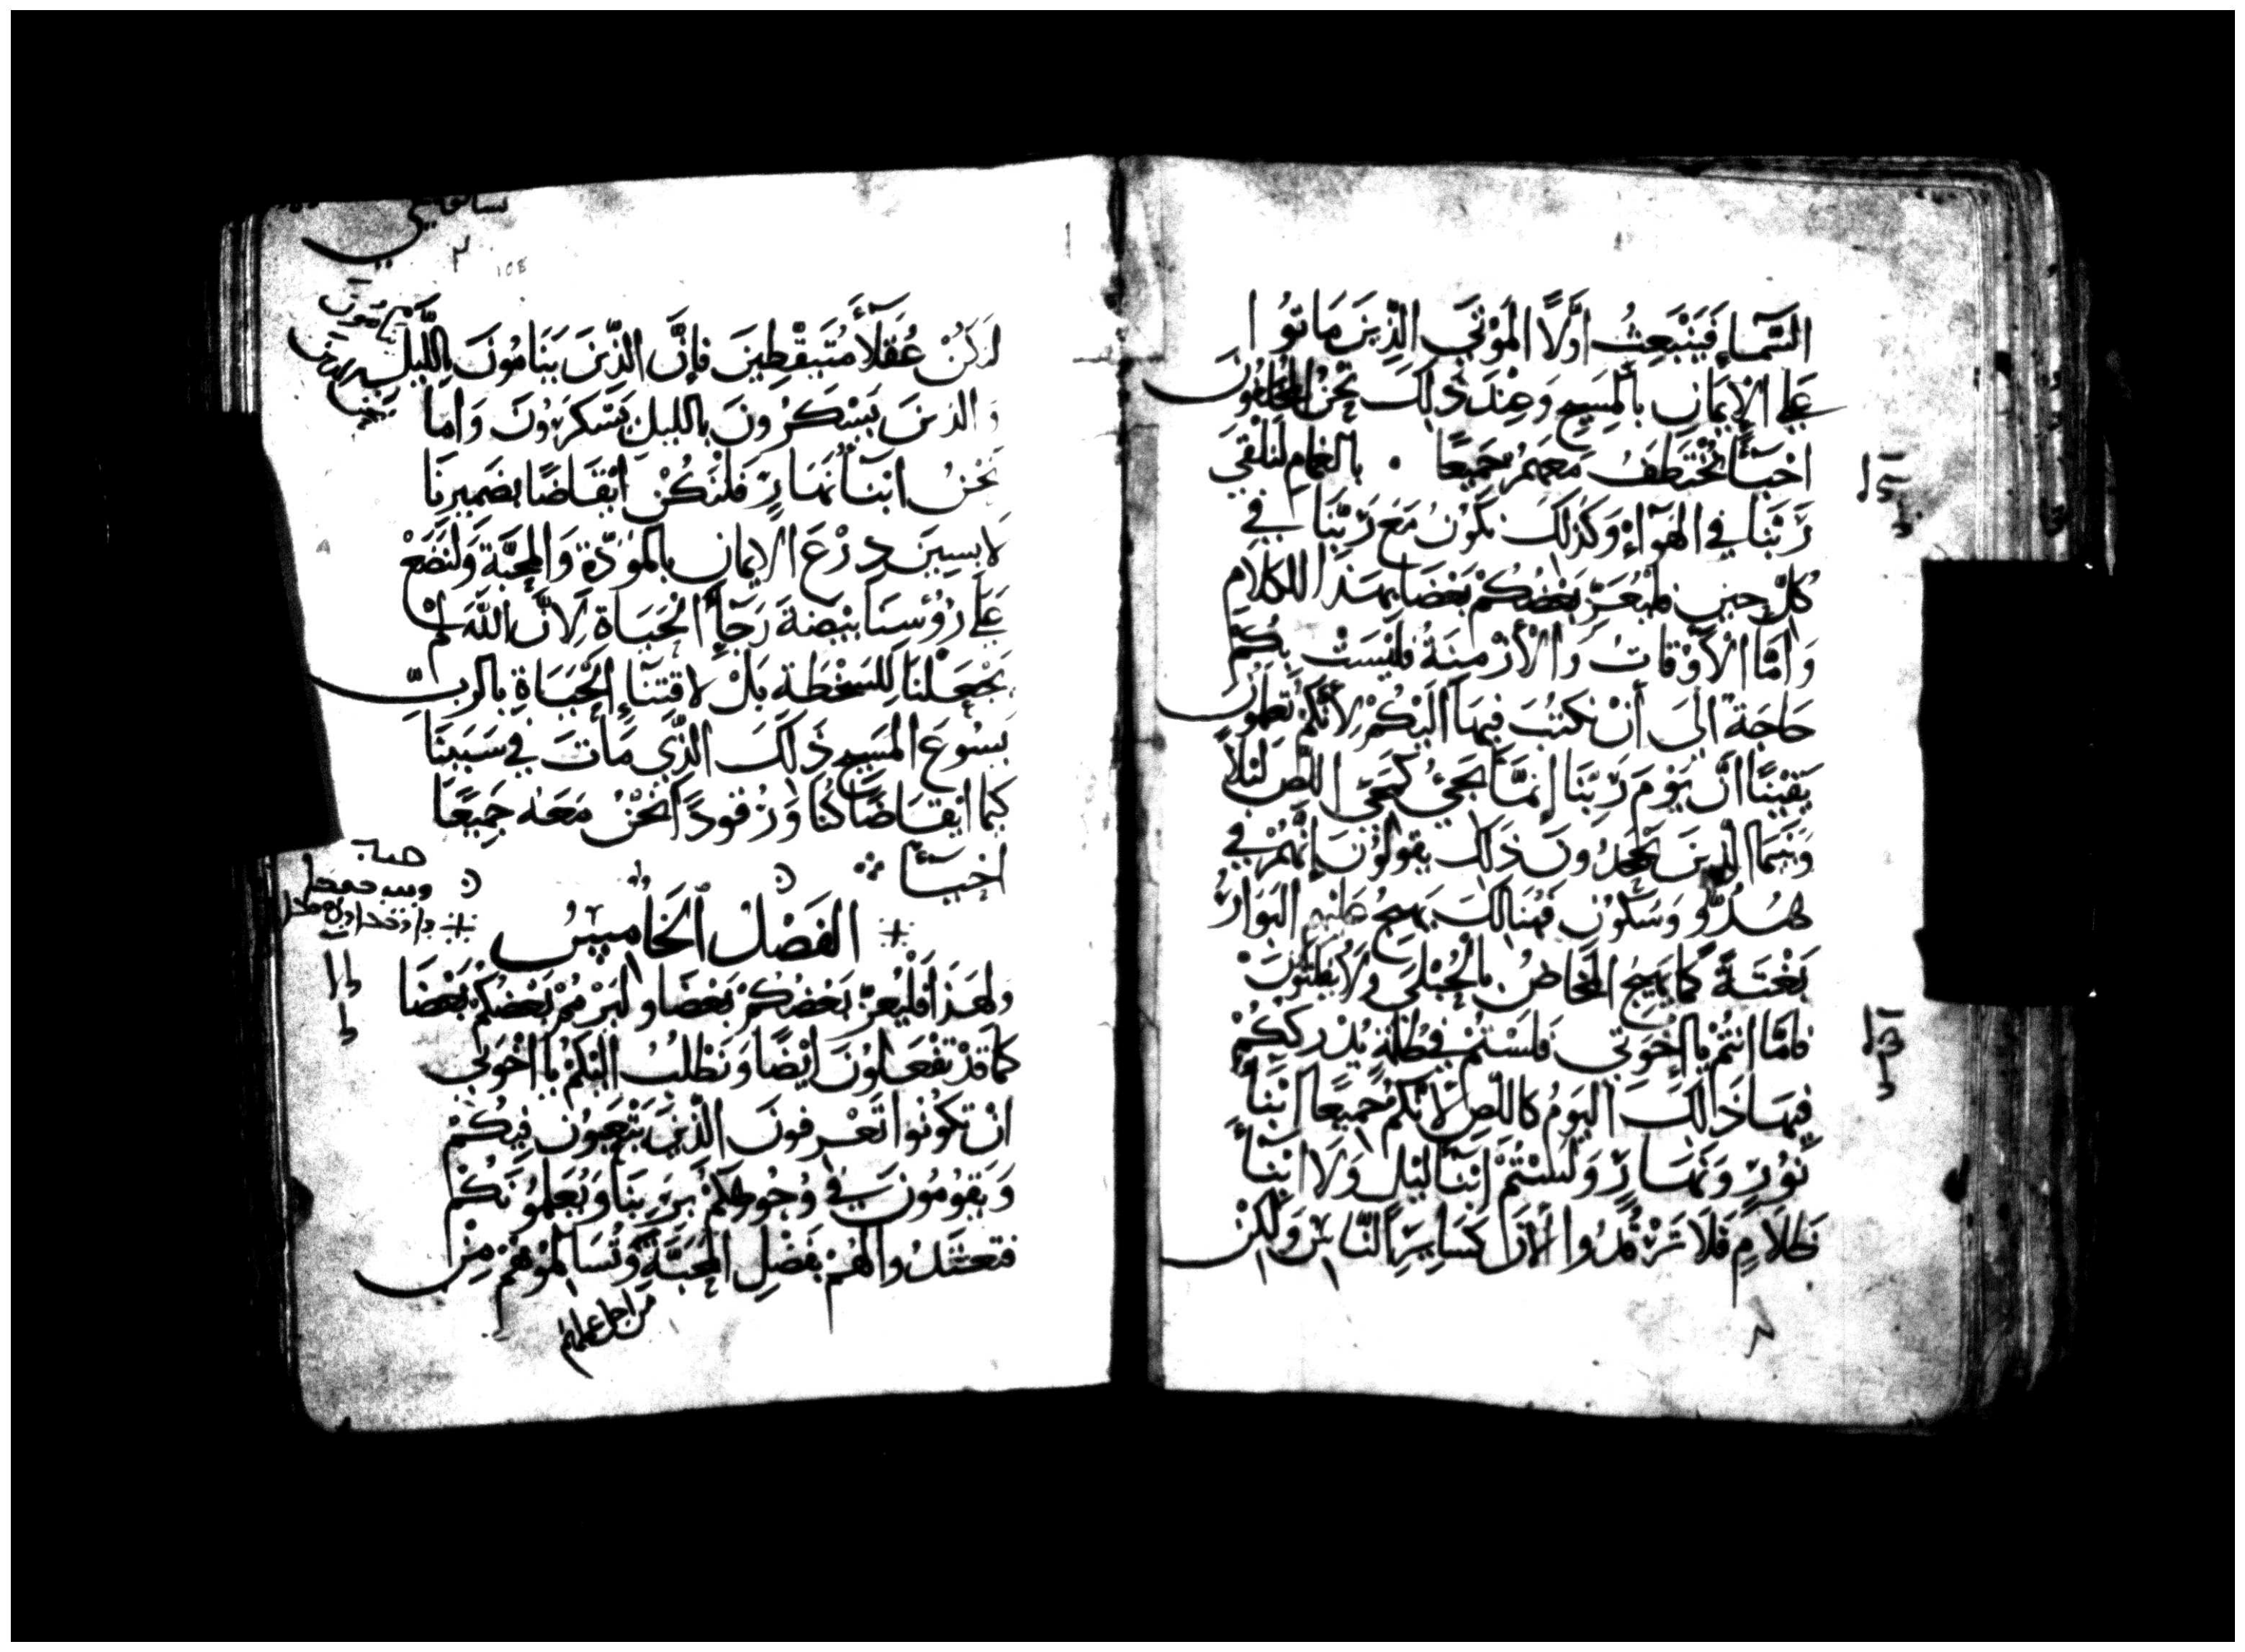 السَّمآءِ فَيَنْبَعِثُ اوَّلًا المَوْتَي الَّذِينَ مَاتوُا
عَلي الاِيمَانِ بالمَسِيحِ وَعِنْدَ ذَلِكَ نحْنُ الباقونَ
احْيَآءً نُختَطَفُ مَعَهمْ جَميعًا بالغمام لنلقي
رَبَّنَا في الهَوآءِ وَكَذلكَ نكوُنُ مَعَ رَبّنَا في
كُلِّ حِينٍ فليُعَزِّ بَعْضُكُمْ بَعْضًا بهَذا الكلامِ
وَامَّا الاَوْقاتُ وَالأزْمنَةُ فليْسَتْ بكُمْ
حَاجَة الىَ أنْ نكتُبَ فيهَا الَيْكُمْ لأنّكُمْ تعلمونَ
يَقيْنًا انَّ يَوْمَ رَبّنَا إنمَّا يَجيُ كمَجيِ اللّصِ لَيْلًا
وَبَيْنمَا الَّذينَ يجْحدُونَ ذَلكَ يقولوُنَ إنَّهُمْ في
هُدُوٍّ وَسكوُنٍ فَهُنَالكَ يَهيجُ عليهم البَوَارُ
بَغْتَةً كمَا يَهيجُ المَخَاضُ بالحُبْلَي ولَا يُفلتوُنَ
فامَّا انتُمْ يا إخْوَتي فلَسْتمُ في ظلمَةٍ يُدْرككُمْ
فيهَا ذَالكَ اليَومُ كاللّصِ لاَنّكمْ جَميعًا ابْنَآءُ
نوُرٍ وَنَهَارٍ وَلَسْتُمْ ابْنَآءَ ليْلٍ وَلَا ابْنَآءَ
ظلَامٍ فَلَا نَرْقُدُوا الآنَ كسَايرِ النَّاسِ وَلكنْ
لنَكُنْ عُقَلآءَ مُتَيَقْظِينَ فإنَّ الذّينَ يَنَامُونَ بالليْلِ
وَالذينَ يَسْكَرُونَ بالليلِ يَسْكَرُونَ وَامَا
نَحْنُ ابْنَآءُ نَهَارٍ فَلْنَكُنْ ايْقَاضًا بضَميرنَا
لابسِينَ دِرْعَ الايمَانِ بالموَدّةِ وَالمحَبَّةِ وَلنَضَعْ
عَلَي رُؤُسِنَا بَيْضةَ رَجآءِ الحَيَاةِ لِأنَّ اللّهَ لمْ
يَجْعَلْنَا للسَّخْطَة بَلْ لاقتنآءِ الحَيَاةِ بالربّ
يسُوعَ المَسيحِ ذَلكَ الذّي مَاتَ في سَبَبنَا
كيمَا ايْقَاضًا كُنَا وَرُقودًا نَحْنُ مَعَهُ جَميعًا
احْيَآءً
الفَصْلُ الخَامِسُ
ولهَذا فليُعزِّ بَعْضُكُمْ بَعْضًا وليَرْمُمْ بَعْضُكُمْ بَعْضًا
كمَا قدْ تفْعَلونَ ايْضًا وَنَطْلبُ الَيْكمُ يا اخْوَتي
انْ تكوُنوا تَعْرفونَ الذّينَ يَتْعَبوُنَ فيكُمْ
وَيقوُمُونَ في وُجُوهكمْ برَبّنَا وَيُعَلموُنَكُمْ
فتعتَدُوا لهُمْ بفَضْلِ المحَبَّةِ وَتُسَالموُهُمْ مِنْ
من اجل عملهم